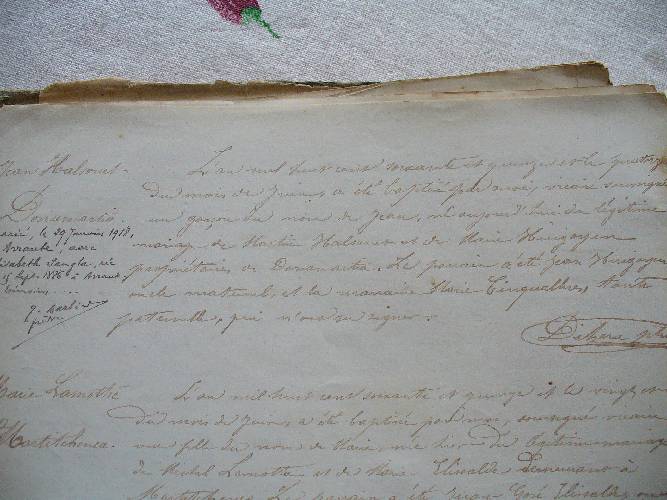 Jean Halsouet.
Donamartia
marié, le 29 Janvier 1918,
à avec
Elisabeth née
Sept. 1886 à
prêtre
L'an mil huit cent soixante et quinze et le quatorze
du mois de Juin, a été baptisé par moi, vicaire soussigné
un garçon du nom de Jean, né aujourd'hui du légitime
mariage de Martin Halsouet et de Marie
propriétaires de Donamartia. Le parrain a été Jean
oncle maternel, et la marraine Marie tante
paternelle, qui n'ont su signer.
Marie Lamotte
Martitchonea.
L'an mil huit cent soixante et quinze et le vingt et
du mois de Juin, a été baptisée par moi, soussigné vicaire
une fille du nom de Marie, née hier du légitime mariage
de Michel Lamotte et de Marie Elisalde demeurant à
Martitchonea. Le parrain a été Elisalde